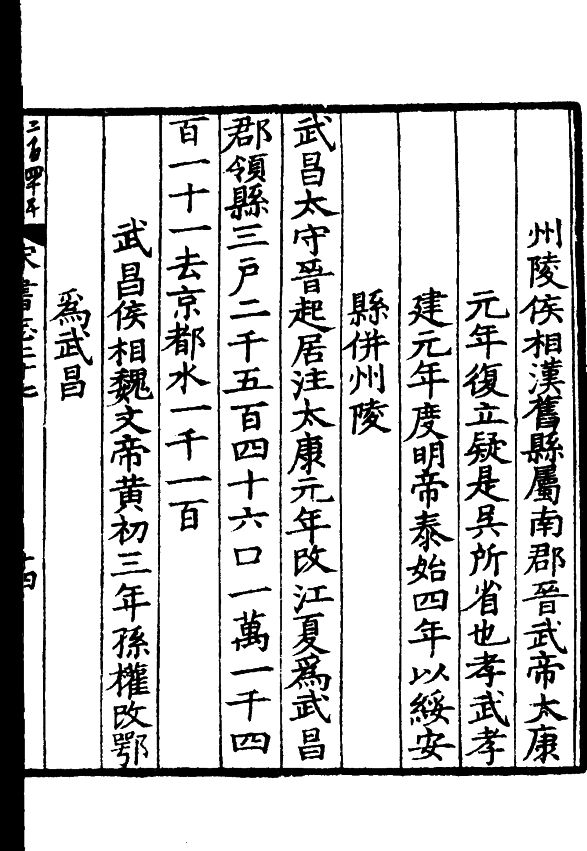 州陵侯相漢舊縣屬南郡晉武帝太康
元年復立疑是吳所省也孝武孝
建元年度明帝泰始四年以綏安
縣併州陵
武昌太守晉起居注太康元年改江夏爲武昌
郡領縣三戶二千五百四十六口一萬一千四
百一十一去京都水一千一百
武昌侯相魏文帝黃初三年孫權改鄂
爲武昌